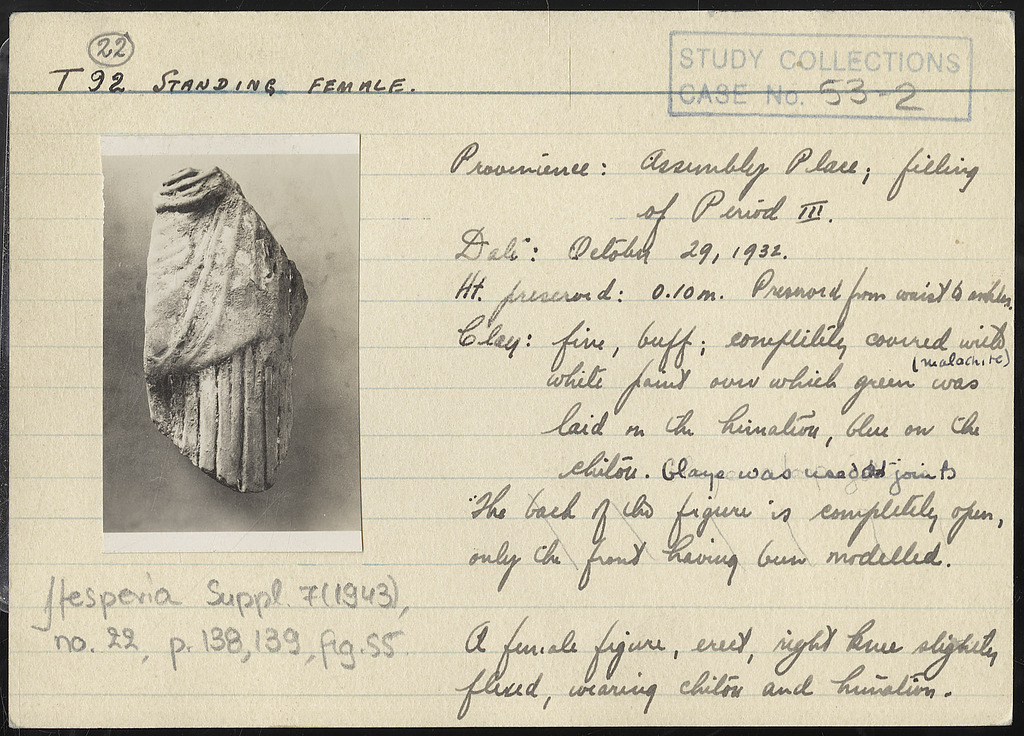 22
T 92 STANDING FEMALE.
STUDY COLLECTIONS
CASE No. 53-2
Provenience: Assembly Place; filling
of Period III.
Date: October 29, 1932.
Ht. preserved: 0.10 m. Preserved from waist to ankles.
Clay: fine, buff; completely covered with
(malachite)
white paint over which green was
laid on the himation, blue on the
chiton. was used at joints
The back of the figure is completely open,
only the front having been modelled.
A female figure, erect, right knee slightly
flexed, wearing chiton and himation.
Hesperia Suppl. 7(1943),
no. 22, p. 138, 139, fig. 55.